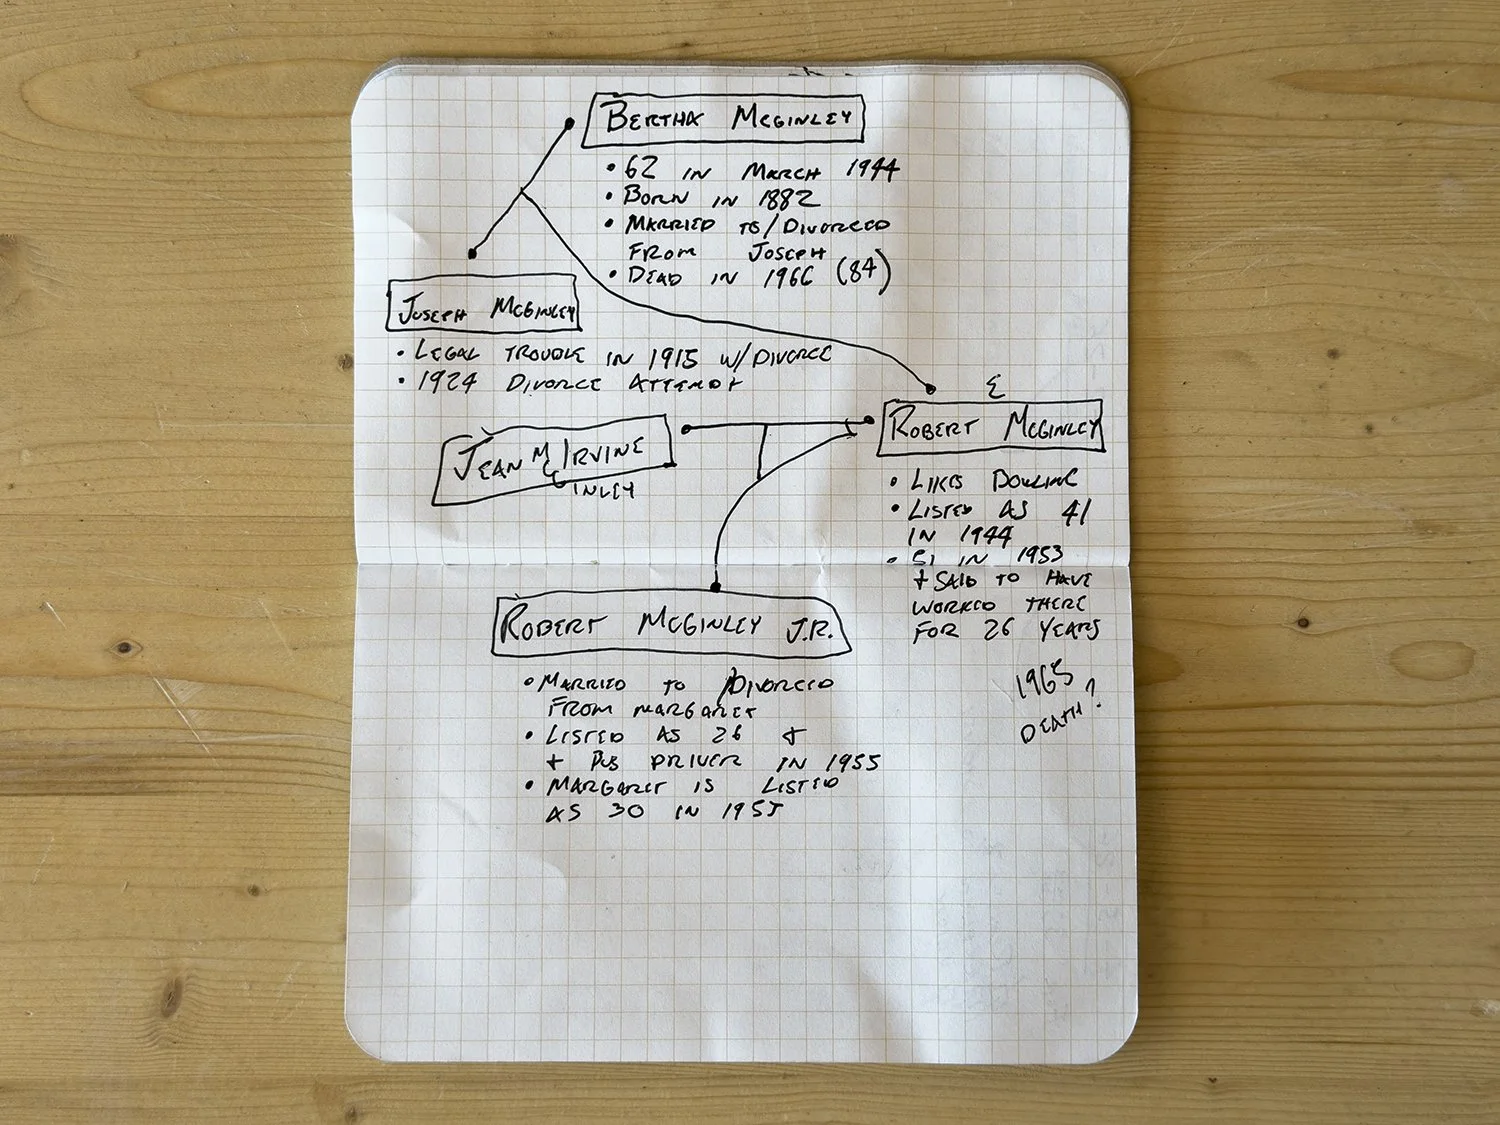 BERTHA MCGINLEY
• 62 IN MARCH 1944
• BORN IN 1882
• MARRIED TO/DIVORCED
FROM JOSEPH
• DEAD IN 1966 (84)
JOSEPH MCGINLEY
• LEGAL TROUBLE IN 1915 W/DIVORCE
• 1924 DIVORCE ATTEMPT
E
ROBERT MCGINLEY
JEAN MC IRVINE
INLEY
• LIKES BOWLING
• LISTED AS 41
IN 1944
• 51 IN 1953
+ SAID TO HAVE
WORKED THERE
FOR 26 YEARS
1965
DEATH?
ROBERT MCGINLEY J.R.
• MARRIED TO /DIVORCED
FROM MARGARET
• LISTED AS 26 +
+ BUS DRIVER IN 1955
• MARGARET IS LISTED
AS 30 IN 1955